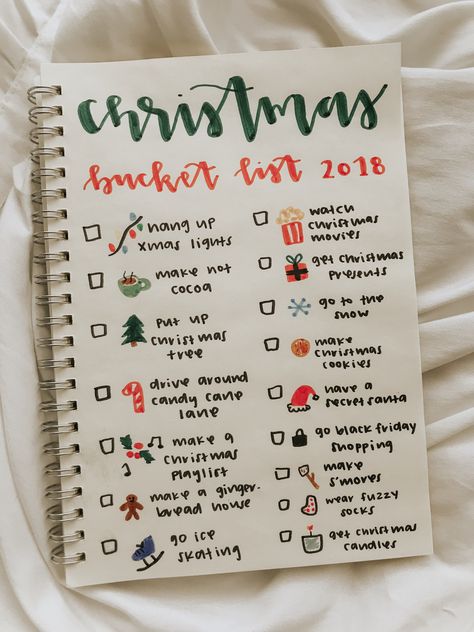 christmas
bucket list 2018
hang up
xmas lights
make hot
cocoa
put up
christmas
tree
drive around
candy cane
lane
make a
christmas
playlist
make a ginger-
bread house
go ice
skating
watch
christmas
movies
get christmas
presents
go to the
snow
make
christmas
cookies
have a
secret santa
go black friday
shopping
make
s'mores
wear fuzzy
socks
get christmas
candles